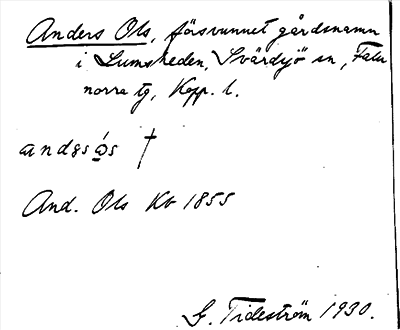 Anders Ols, försvunnet gårdsnamn
i Lumsheden, Svärdsjö sn, Falu
norra tg, Kopp. l.
andəs ós †
And. Ols Kb 1855
G. Tideström 1930.